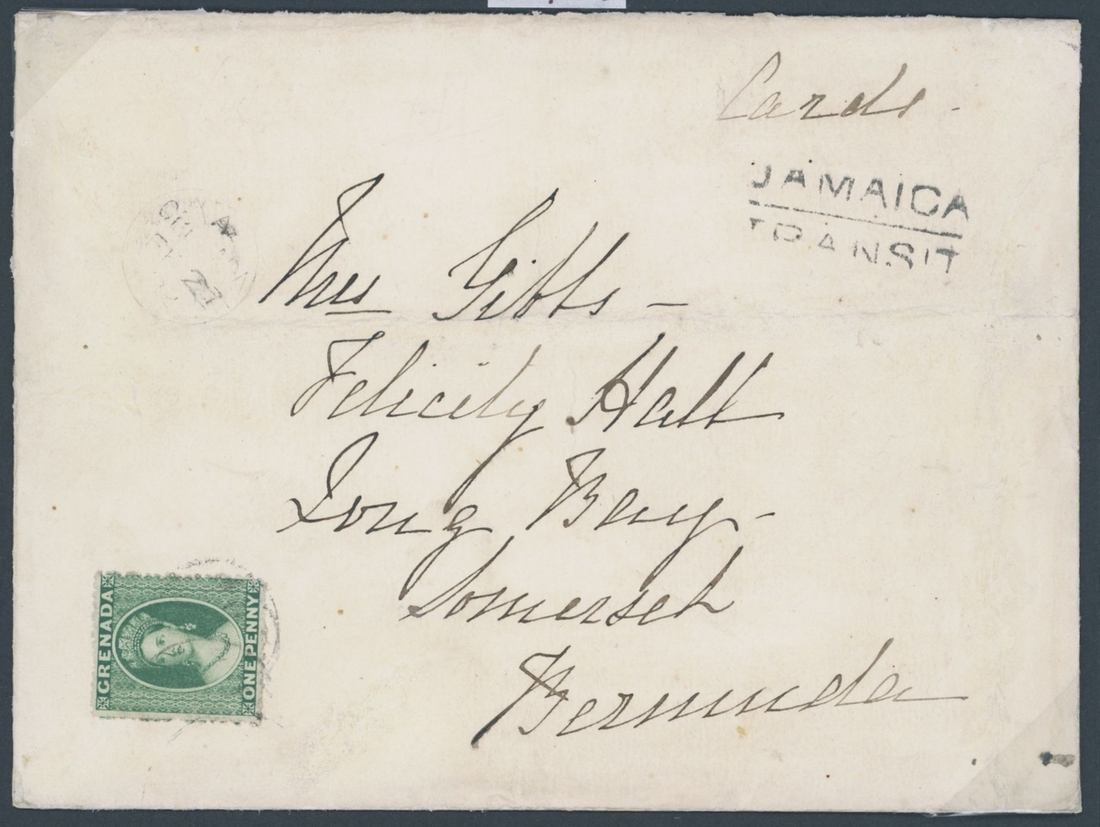 Cards -
JAMAICA
TRANSIT
Mrs Gibbs -
Felicity Hall
Long Bay -
Somerset
Bermuda
GRENADA
ONE PENNY